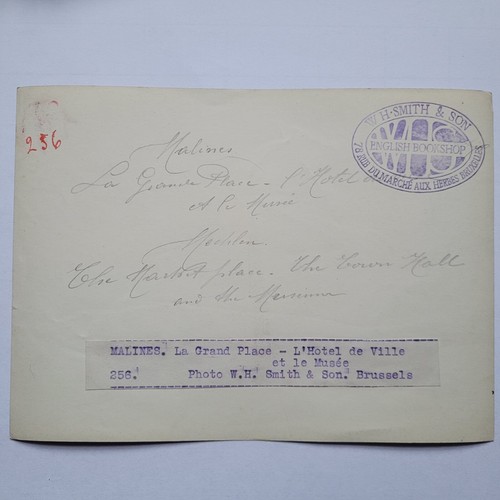 256
W·H·SMITH & SON
ENGLISH BOOKSHOP
78 RUE DU MARCHÉ AUX HERBES BRUXELLES
Malines
La Grande Place - l'Hotel
et le Musée
The Market place. The Town Hall
and the Museum
MALINES. La Grand Place - L'Hotel de Ville
et le Musée
256. Photo W.H. Smith & Son. Brussels